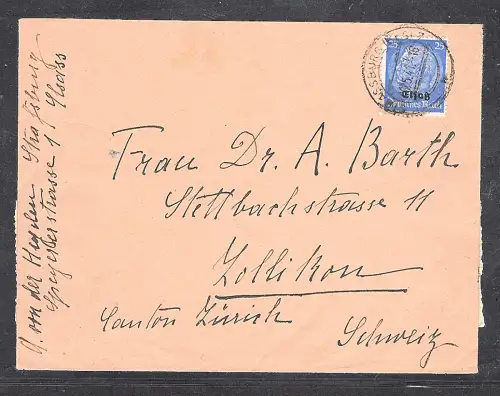 25 25
Elsaß
Deutsches Reich
Frau Dr. A. Barth
Stettbachstrasse 11
Zollikon
Canton Zürich
Schweiz
von der Straßburg
1. Elsass